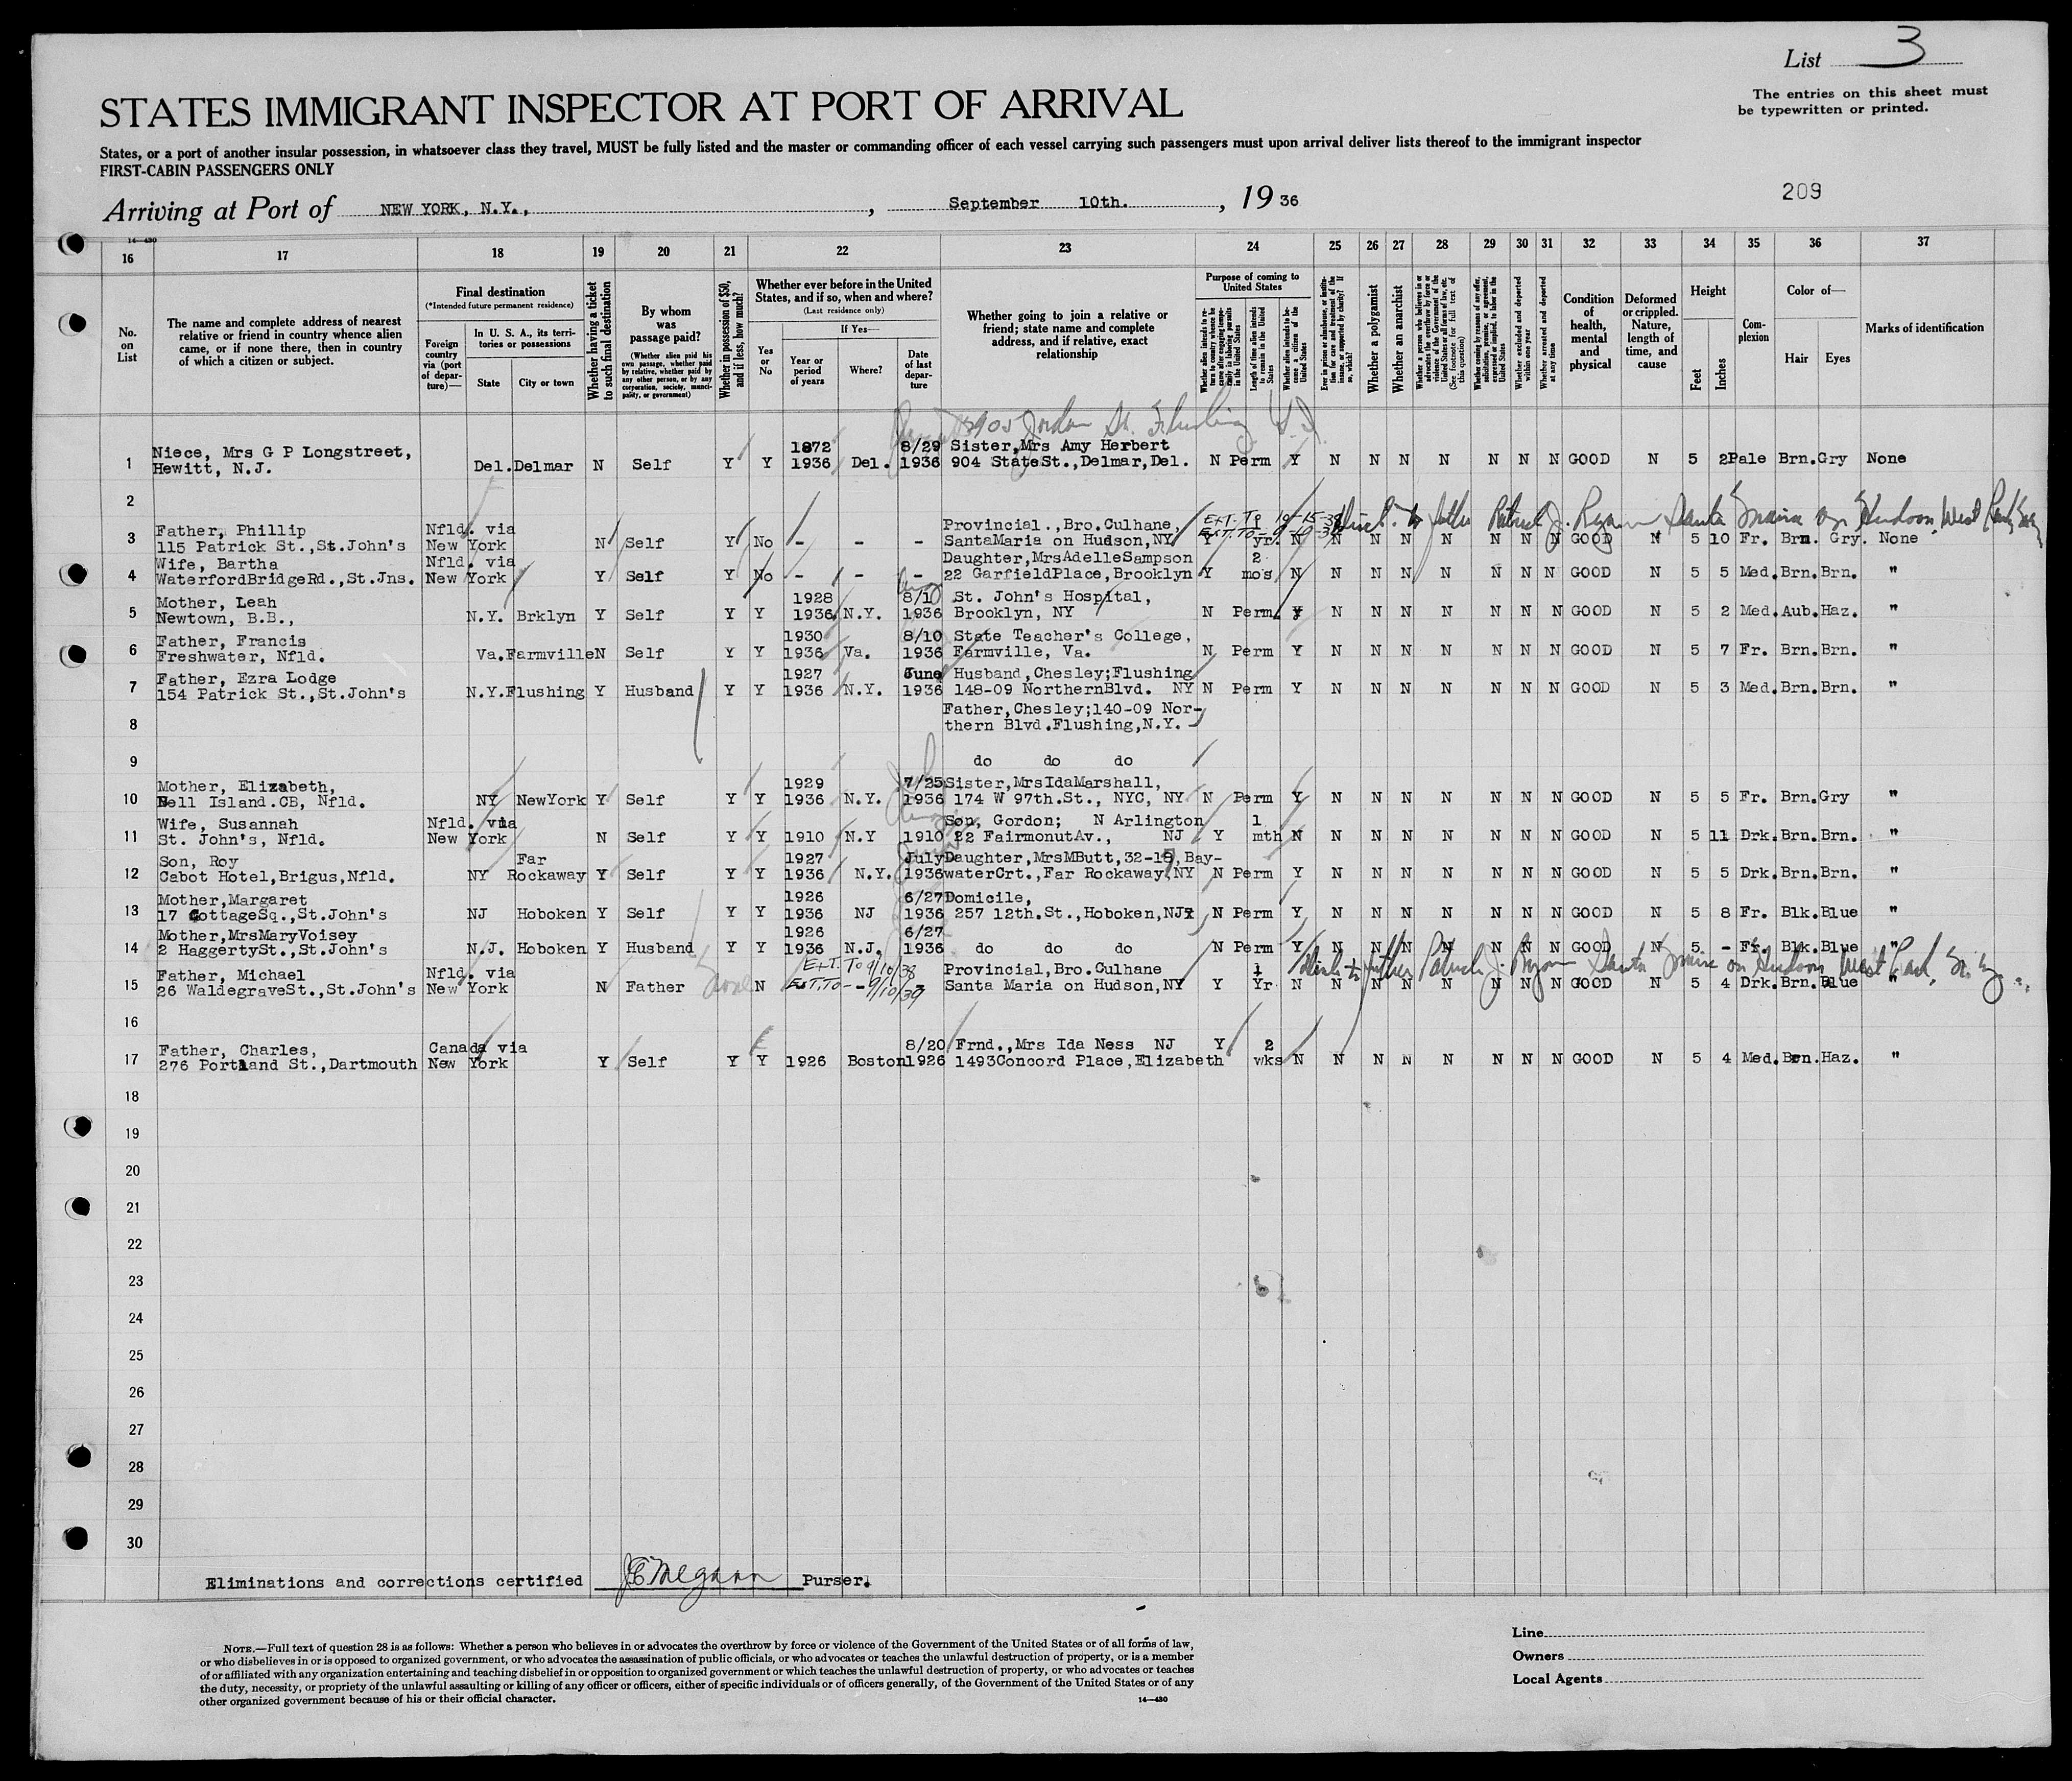 List 3
The entries on this sheet must
be typewritten or printed.
STATES IMMIGRANT INSPECTOR AT PORT OF ARRIVAL
States, or a port of another insular possession, in whatsoever class they travel, MUST be fully listed and the master or commanding officer of each vessel carrying such passengers must upon arrival deliver lists thereof to the immigrant inspector
FIRST-CABIN PASSENGERS ONLY
209
Arriving at Port of NEW YORK, N.Y., , September 10th. , 19 36
14—430
16 17 18 19 20 21 22 23 24 25 26 27 28 29 30 31 32 33 34 35 36 37
No. on List
The name and complete address of nearest relative or friend in country whence alien came, or if none there, then in country of which a citizen or subject.
Final destination
(*Intended future permanent residence)
Foreign country via (port of departure)—
In U. S. A., its territories or possessions
State
City or town
Whether having a ticket to such final destination
By whom was passage paid?
(Whether alien paid his own passage, whether paid by relative, whether paid by any other person, or by any corporation, society, municipality, or government)
Whether in possession of $50, and if less, how much?
Whether ever before in the United States, and if so, when and where?
(Last residence only)
Yes or No
If Yes—
Year or period of years
Where?
Date of last departure
Whether going to join a relative or friend; state name and complete address, and if relative, exact relationship
Purpose of coming to United States
Whether alien intends to return to country whence he came after engaging temporarily in laboring pursuits in the United States
Length of time alien intends to remain in the United States
Whether alien intends to become a citizen of the United States
Ever in prison or almshouse, or institution for care and treatment of the insane, or supported by charity? If so, which?
Whether a polygamist
Whether an anarchist
Whether a person who believes in or advocates the overthrow by force or violence of the Government of the United States or all forms of law, etc. (See footnote for full text of this question)
Whether coming by reasons of any offer, solicitation, promise, or agreement, expressed or implied, to labor in the United States
Whether excluded and deported within one year
Whether arrested and deported at any time
Condition of health, mental and physical
Deformed or crippled. Nature, length of time, and cause
Height
Feet
Inches
Complexion
Color of—
Hair Eyes
Marks of identification
Jordan St. Flushing
Niece, Mrs G P Longstreet, 1872 8/29 Sister,Mrs Amy Herbert
1 Hewitt, N.J. Del. Delmar N Self Y Y 1936 Del. 1936 904 StateSt.,Delmar,Del. N Perm Y N N N N N N N GOOD N 5 2 Pale Brn. Gry None
2
Father, Phillip Nfld. via Provincial.,Bro.Culhane, Ext. To
3 115 Patrick St.,St.John's New York N Self Y No - - - SantaMaria on Hudson,NY Y yr. N N N N N N N N GOOD N 5 10 Fr. Brn. Gry. None
father Patrick J. Ryan Santa Maria on Hudson West Park
Wife, Bartha Nfld. via Daughter,MrsAdelleSampson 2
4 WaterfordBridgeRd.,St.Jns. New York Y Self Y No - - - 22 GarfieldPlace,Brooklyn Y mos N N N N N N N N GOOD N 5 5 Med. Brn. Brn. "
Mother, Leah 1928 8/10 St. John's Hospital,
5 Newtown, B.B., N.Y. Brklyn Y Self Y Y 1936 N.Y. 1936 Brooklyn, NY N Perm. Y N N N N N N N GOOD N 5 2 Med. Aub. Haz. "
Father, Francis 1930 8/10 State Teacher's College,
6 Freshwater, Nfld. Va. Farmville N Self Y Y 1936 Va. 1936 Farmville, Va. N Perm Y N N N N N N N GOOD N 5 7 Fr. Brn. Brn. "
Father, Ezra Lodge 1927 June Husband,Chesley;Flushing
7 154 Patrick St.,St.John's N.Y. Flushing Y Husband Y Y 1936 N.Y. 1936 148-09 NorthernBlvd. NY N Perm Y N N N N N N N GOOD N 5 3 Med. Brn. Brn. "
Father,Chesley;140-09 Nor-
8 thern Blvd.Flushing,N.Y.
9 do do do
Mother, Elizabeth, 1929 7/25 Sister,MrsIdaMarshall,
10 Bell Island.CB, Nfld. NY NewYork Y Self Y Y 1936 N.Y. 1936 174 W 97th.St., NYC, NY N Perm Y N N N N N N N GOOD N 5 5 Fr. Brn. Gry "
Wife, Susannah Nfld. via Son, Gordon; N Arlington 1
11 St. John's, Nfld. New York N Self Y Y 1910 N.Y 1910 22 FairmonutAv., NJ Y mth N N N N N N N N GOOD N 5 11 Drk. Brn. Brn. "
Son, Roy Far 1927 July Daughter,MrsMButt,32-19,Bay-
12 Cabot Hotel,Brigus,Nfld. NY Rockaway Y Self Y Y 1936 N.Y. 1936 waterCrt.,Far Rockaway,NY N Perm Y N N N N N N N GOOD N 5 5 Drk. Brn. Brn. "
Mother,Margaret 1926 6/27 Domicile,
13 17 CottageSq.,St.John's NJ Hoboken Y Self Y Y 1936 NJ 1936 257 12th.St.,Hoboken,NJ N Perm Y N N N N N N N GOOD N 5 8 Fr. Blk. Blue "
Mother,MrsMaryVoisey 1926 6/27
14 2 HaggertySt.,St.John's N.J. Hoboken Y Husband Y Y 1936 N.J. 1936 do do do N Perm Y N N N N N N N GOOD N 5 - Fr. Blk. Blue "
Father, Michael Nfld. via Ext. To 9/10/38 Provincial,Bro.Culhane 1 father Patrick J. Ryan Santa Maria on Hudson West Park
15 26 WaldegraveSt.,St.John's New York N Father N Ext. To 9/10/39 Santa Maria on Hudson,NY Y Yr N N N N N N N N GOOD N 5 4 Drk. Brn. Blue "
16
Father, Charles, Canada via 8/20 Frnd.,Mrs Ida Ness NJ Y 2
17 276 Portland St.,Dartmouth New York Y Self Y Y 1926 Boston 1926 1493Concord Place,Elizabeth wks N N N N N N N N GOOD N 5 4 Med. Brn. Haz. "
18
19
20
21
22
23
24
25
26
27
28
29
30
Eliminations and corrections certified Purser.
NOTE.—Full text of question 28 is as follows: Whether a person who believes in or advocates the overthrow by force or violence of the Government of the United States or of all forms of law,
or who disbelieves in or is opposed to organized government, or who advocates the assassination of public officials, or who advocates or teaches the unlawful destruction of property, or is a member
of or affiliated with any organization entertaining and teaching disbelief in or opposition to organized government or which teaches the unlawful destruction of property, or who advocates or teaches
the duty, necessity, or propriety of the unlawful assaulting or killing of any officer or officers, either of specific individuals or of officers generally, of the Government of the United States or of any
other organized government because of his or their official character.
14—430
Line
Owners
Local Agents